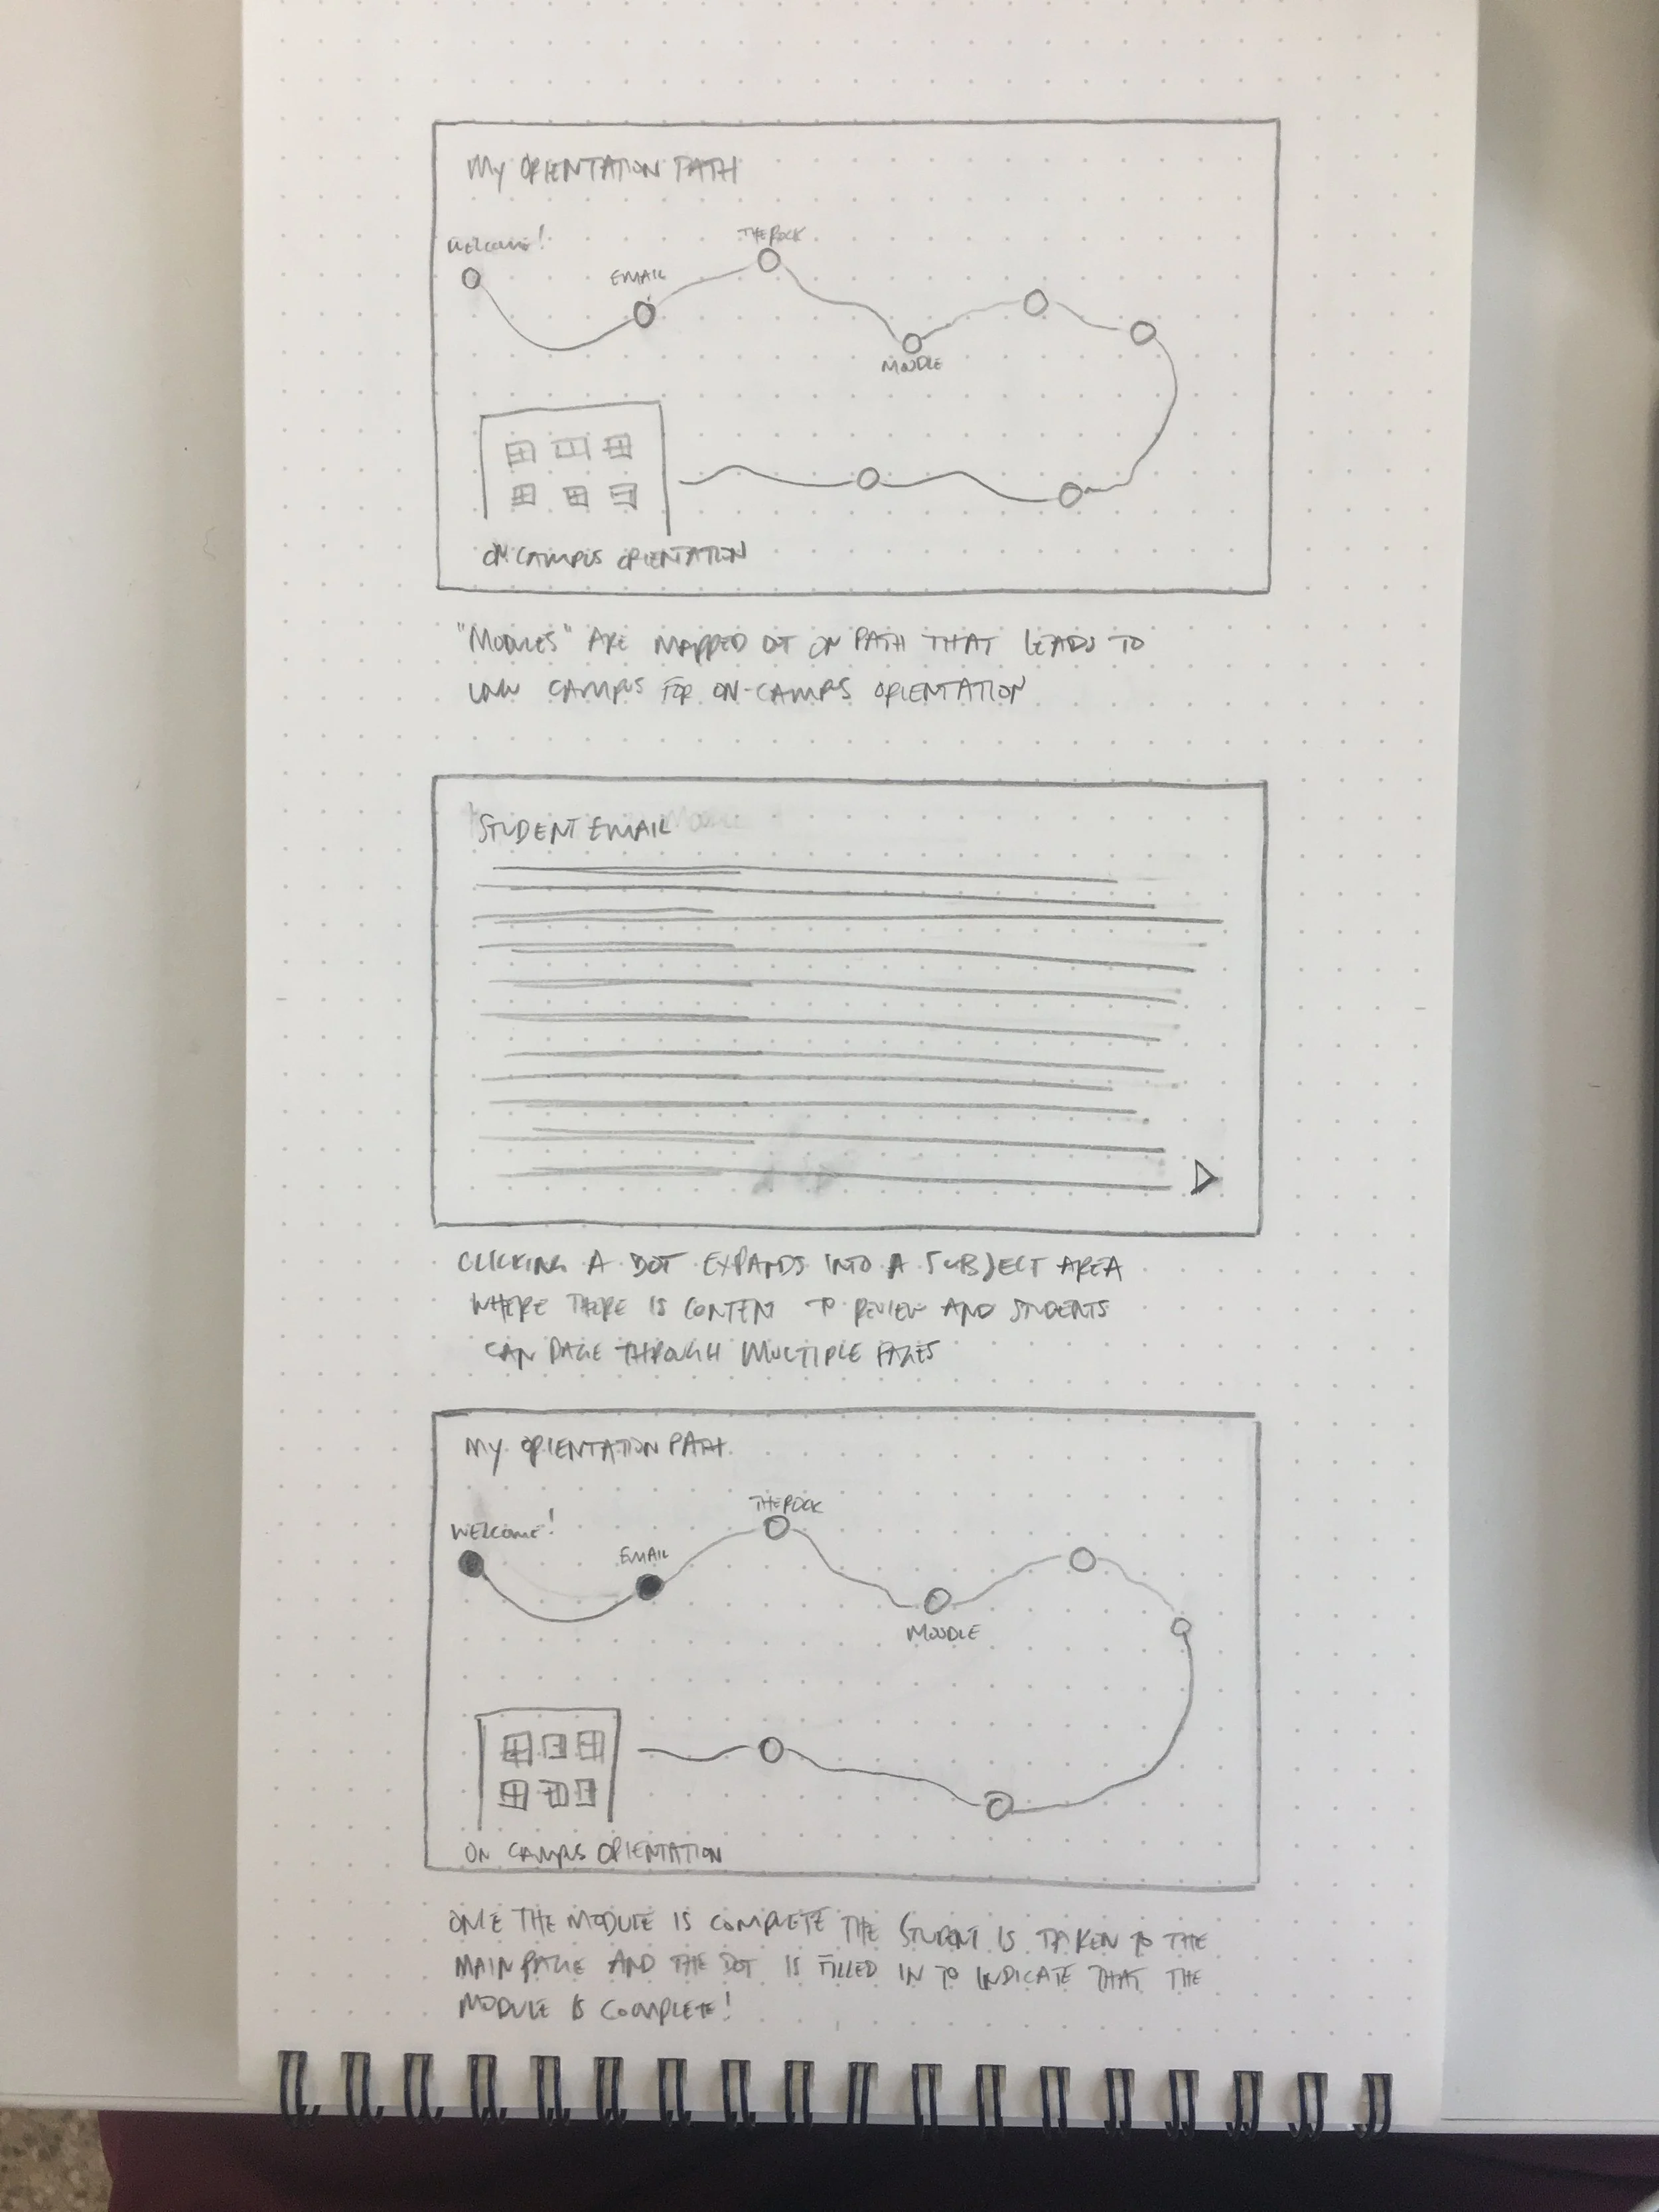 MY ORIENTATION PATH
WELCOME!
THE ROCK
EMAIL
MOODLE
ON CAMPUS ORIENTATION
"MODULES" ARE MAPPED OUT ON PATH THAT LEADS TO
CAMPUS FOR ON-CAMPUS ORIENTATION
STUDENT EMAIL
CLICKING A DOT EXPANDS INTO A SUBJECT AREA
WHERE THERE IS CONTENT TO REVIEW AND STUDENTS
CAN PAGE THROUGH MULTIPLE PAGES
MY ORIENTATION PATH
THE ROCK
WELCOME!
EMAIL
MOODLE
ON CAMPUS ORIENTATION
ONCE THE MODULE IS COMPLETE THE STUDENT IS TAKEN TO THE
MAIN PAGE AND THE DOT IS FILLED IN TO INDICATE THAT THE
MODULE IS COMPLETE!